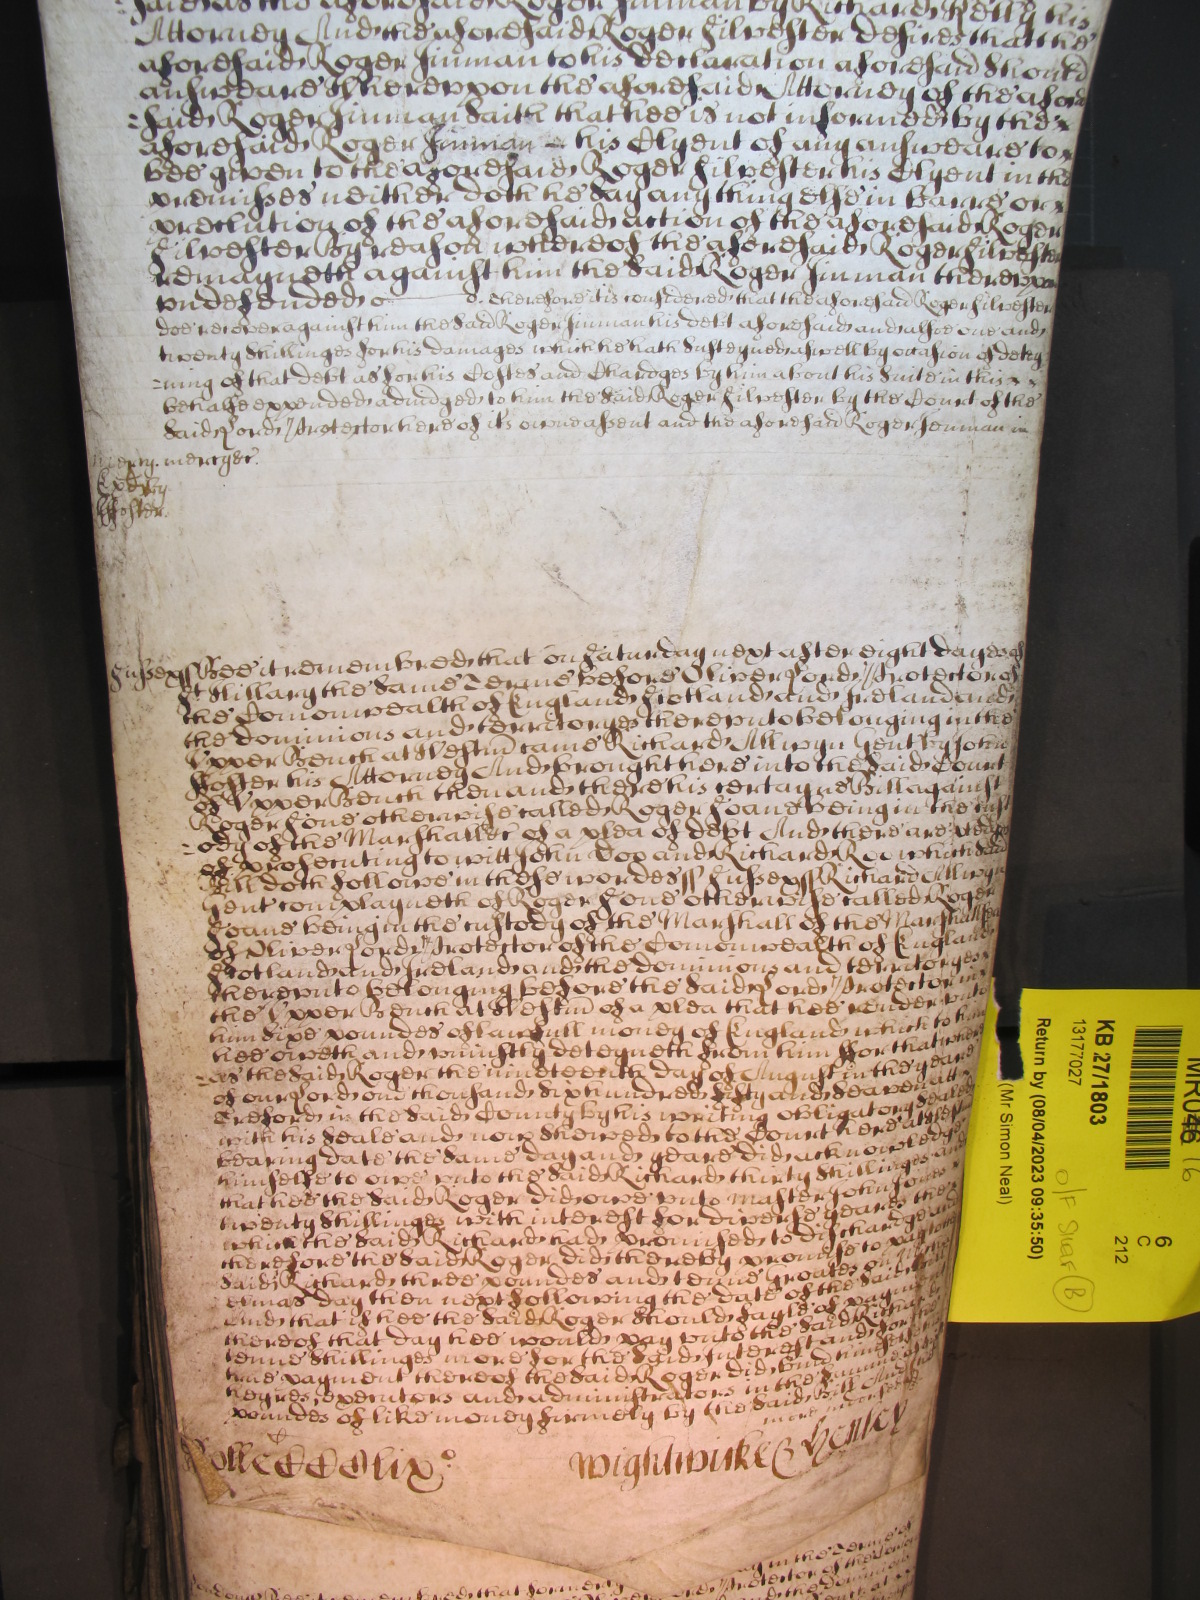 said as the aforesaid Roger Jinman by Richard Kelly his
Attorney And the aforesaid Roger Silvester desires that the
aforesaid Roger Jinman to his declaration aforesaid should
answeare Whereupon the aforesaid Attorney of the afore
=said Roger Jinman Saith that hee is not informed by the
aforesaid Roger Jinman his Clyent of any answeare to
bee given to the aforesaid Roger Silvester his Clyent in the
premisses neither doth he say any thing else in barre or
preclution of the aforesaid action of the aforesaid Roger
Silvester By reason whereof the aforesaid Roger Silvester
remayneth against him the said Roger Jinman thereupon
undefended Therefore it is considered that the aforesaid Roger Silvester
doe recover against him the said Roger Jinman his debt aforesaid and alsoe one and
twenty shillinges for his damages which he hath susteyned aswell by occasion of detey
=ning of that debt as for his Costes and Chardges by him about his suite in this
behalfe expended adiudged to him the said Roger Silvester by the Court of the
said Lord Protector here of its owne assent and the aforesaid Roger Jenman in
mercy etc.
Sussex ss Bee it remembred that on Saturday next after eight dayes of
St Hillary the same Terme before Oliver Lord Protector of
the Comonwealth of England Scotland and Ireland and
the dominions and territoryes thereunto belonging in the
Upper Bench at Westm came Richard Allwyn Gent by John
Foster his Attorney And brought here into the said Court
of Upper Bench then and there his certayne Bill against
Roger Sone otherwise called Roger Soane being in the cust
=ody of the Marshall etc of a plea of debt And there are pledges
of prosecuting to witt John Doo and Richard Roo which said
Bill doth followe in these wordes ss Sussex ss Richard Allwyn
Gent complayneth of Roger Sone otherwise called Roger
Soane being in the custody of the Marshall of the Marshallsea
of Oliver Lord Protector of the Comonwealth of England
Scotland and Ireland and the dominions and territoryes
thereunto belonging before the said Lord Protector in
the Upper Bench at Westm of a plea that hee render unto
him sixe poundes of lawfull money of England which to him
hee oweth and uniustly deteyneth from him For that where
=as the said Roger the nineteenth day of August in the yeare
of our Lord one thousand six hundred fifty and seaven att
Treford in the said County by his writing obligatory sealed
with his seale and now shewed to the Court here
bearing date the same day and yeare did acknowledge
himselfe to owe unto the said Richard thirty shillinges and
that hee the said Roger did owe unto Master John
twenty shillinges with interest for diverse yeares
which the said Richard had promised to dischardge and
therefore the said Roger did thereby promise to pay
said Richard three poundes and tenne groates on
=elmas day then next following the date of the said
And that if hee the said Roger should fayle of payment
thereof that day hee would pay unto the said Richard
tenne shillinges more for the said interest and for
true payment thereof the said Roger did bind himselfe his
heyres executors and administrators in the
poundes of like money firmely by the said Bill And
Rolle CCCClixo
Wightwicke & Henley
KB 27/1803
13177027
Return by (08/04/2023 09:35:50)
(Mr Simon Neal)
6
C
212
O/F Shelf B